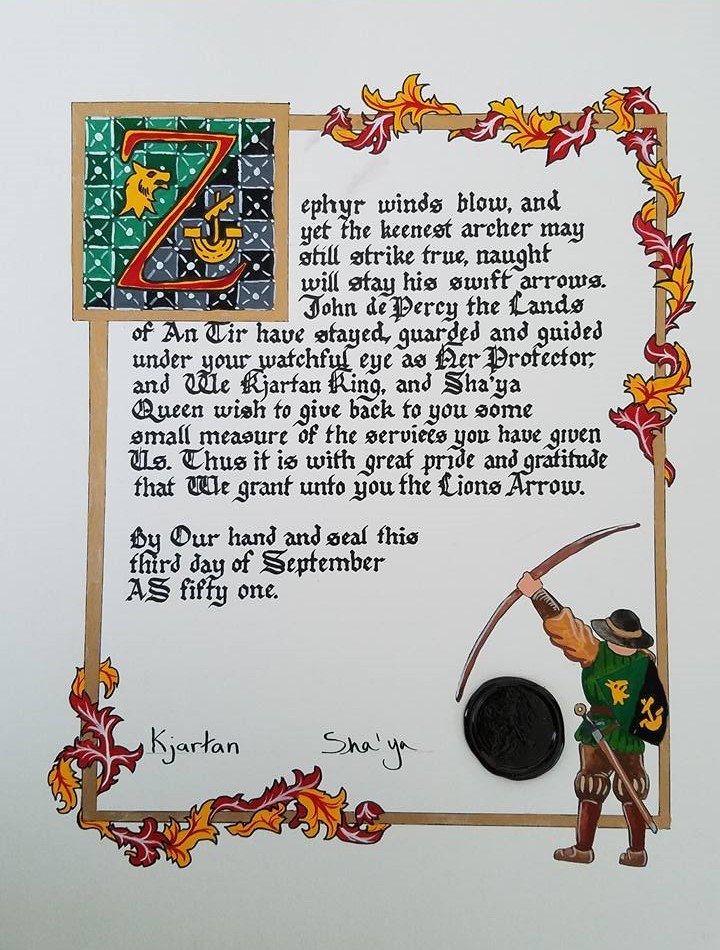 Zephyr winds blow, and
yet the keenest archer may
still strike true, naught
will stay his swift arrows.
John de Percy the Lands
of An Tir have stayed, guarded and guided
under your watchful eye as Her Protector,
and We Kjartan King, and Sha'ya
Queen wish to give back to you some
small measure of the services you have given
Us. Thus it is with great pride and gratitude
that We grant unto you the Lions Arrow.
By Our hand and seal this
third day of September
AS fifty one.
Kjartan Sha'ya